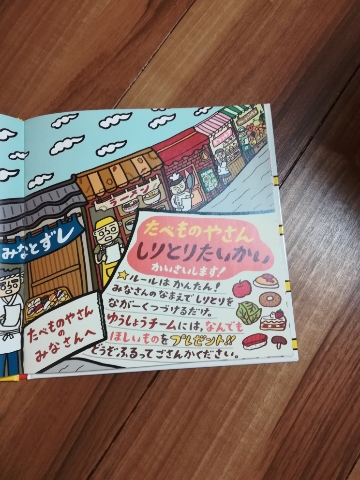 ラーメン
みなとずし
たべものやさん
の
みなさんへ
たべものやさん
しりとりたいかい
かいさいします!
ルールは かんたん!
みなさんの なまえで しりとりを
ながーく つづけるだけ。
ゆうしょうチームには、なんでも
ほしいものを プレゼント!!
どうぞ ふるって ごさんかください。